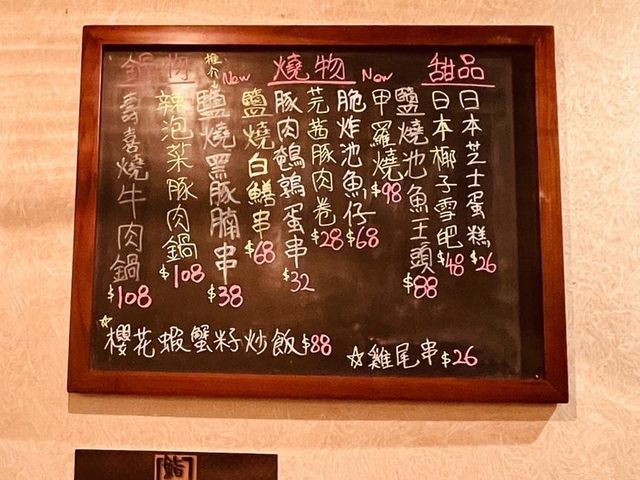 鍋物
推介↓
New
燒物
New
甜品
壽喜燒牛肉鍋 $108
辣泡菜豚肉鍋 $108
鹽燒黑豚腩串 $38
鹽燒白鱔串 $68
豚肉鵪鶉蛋串 $32
芫茜豚肉卷 $28
脆炸池魚仔 $68
甲羅燒 $98
鹽燒池魚王頭 $88
日本椰子雪吧 $48
日本芝士蛋糕 $26
☆櫻花蝦蟹籽炒飯 $88
☆雞尾串 $26
鮨